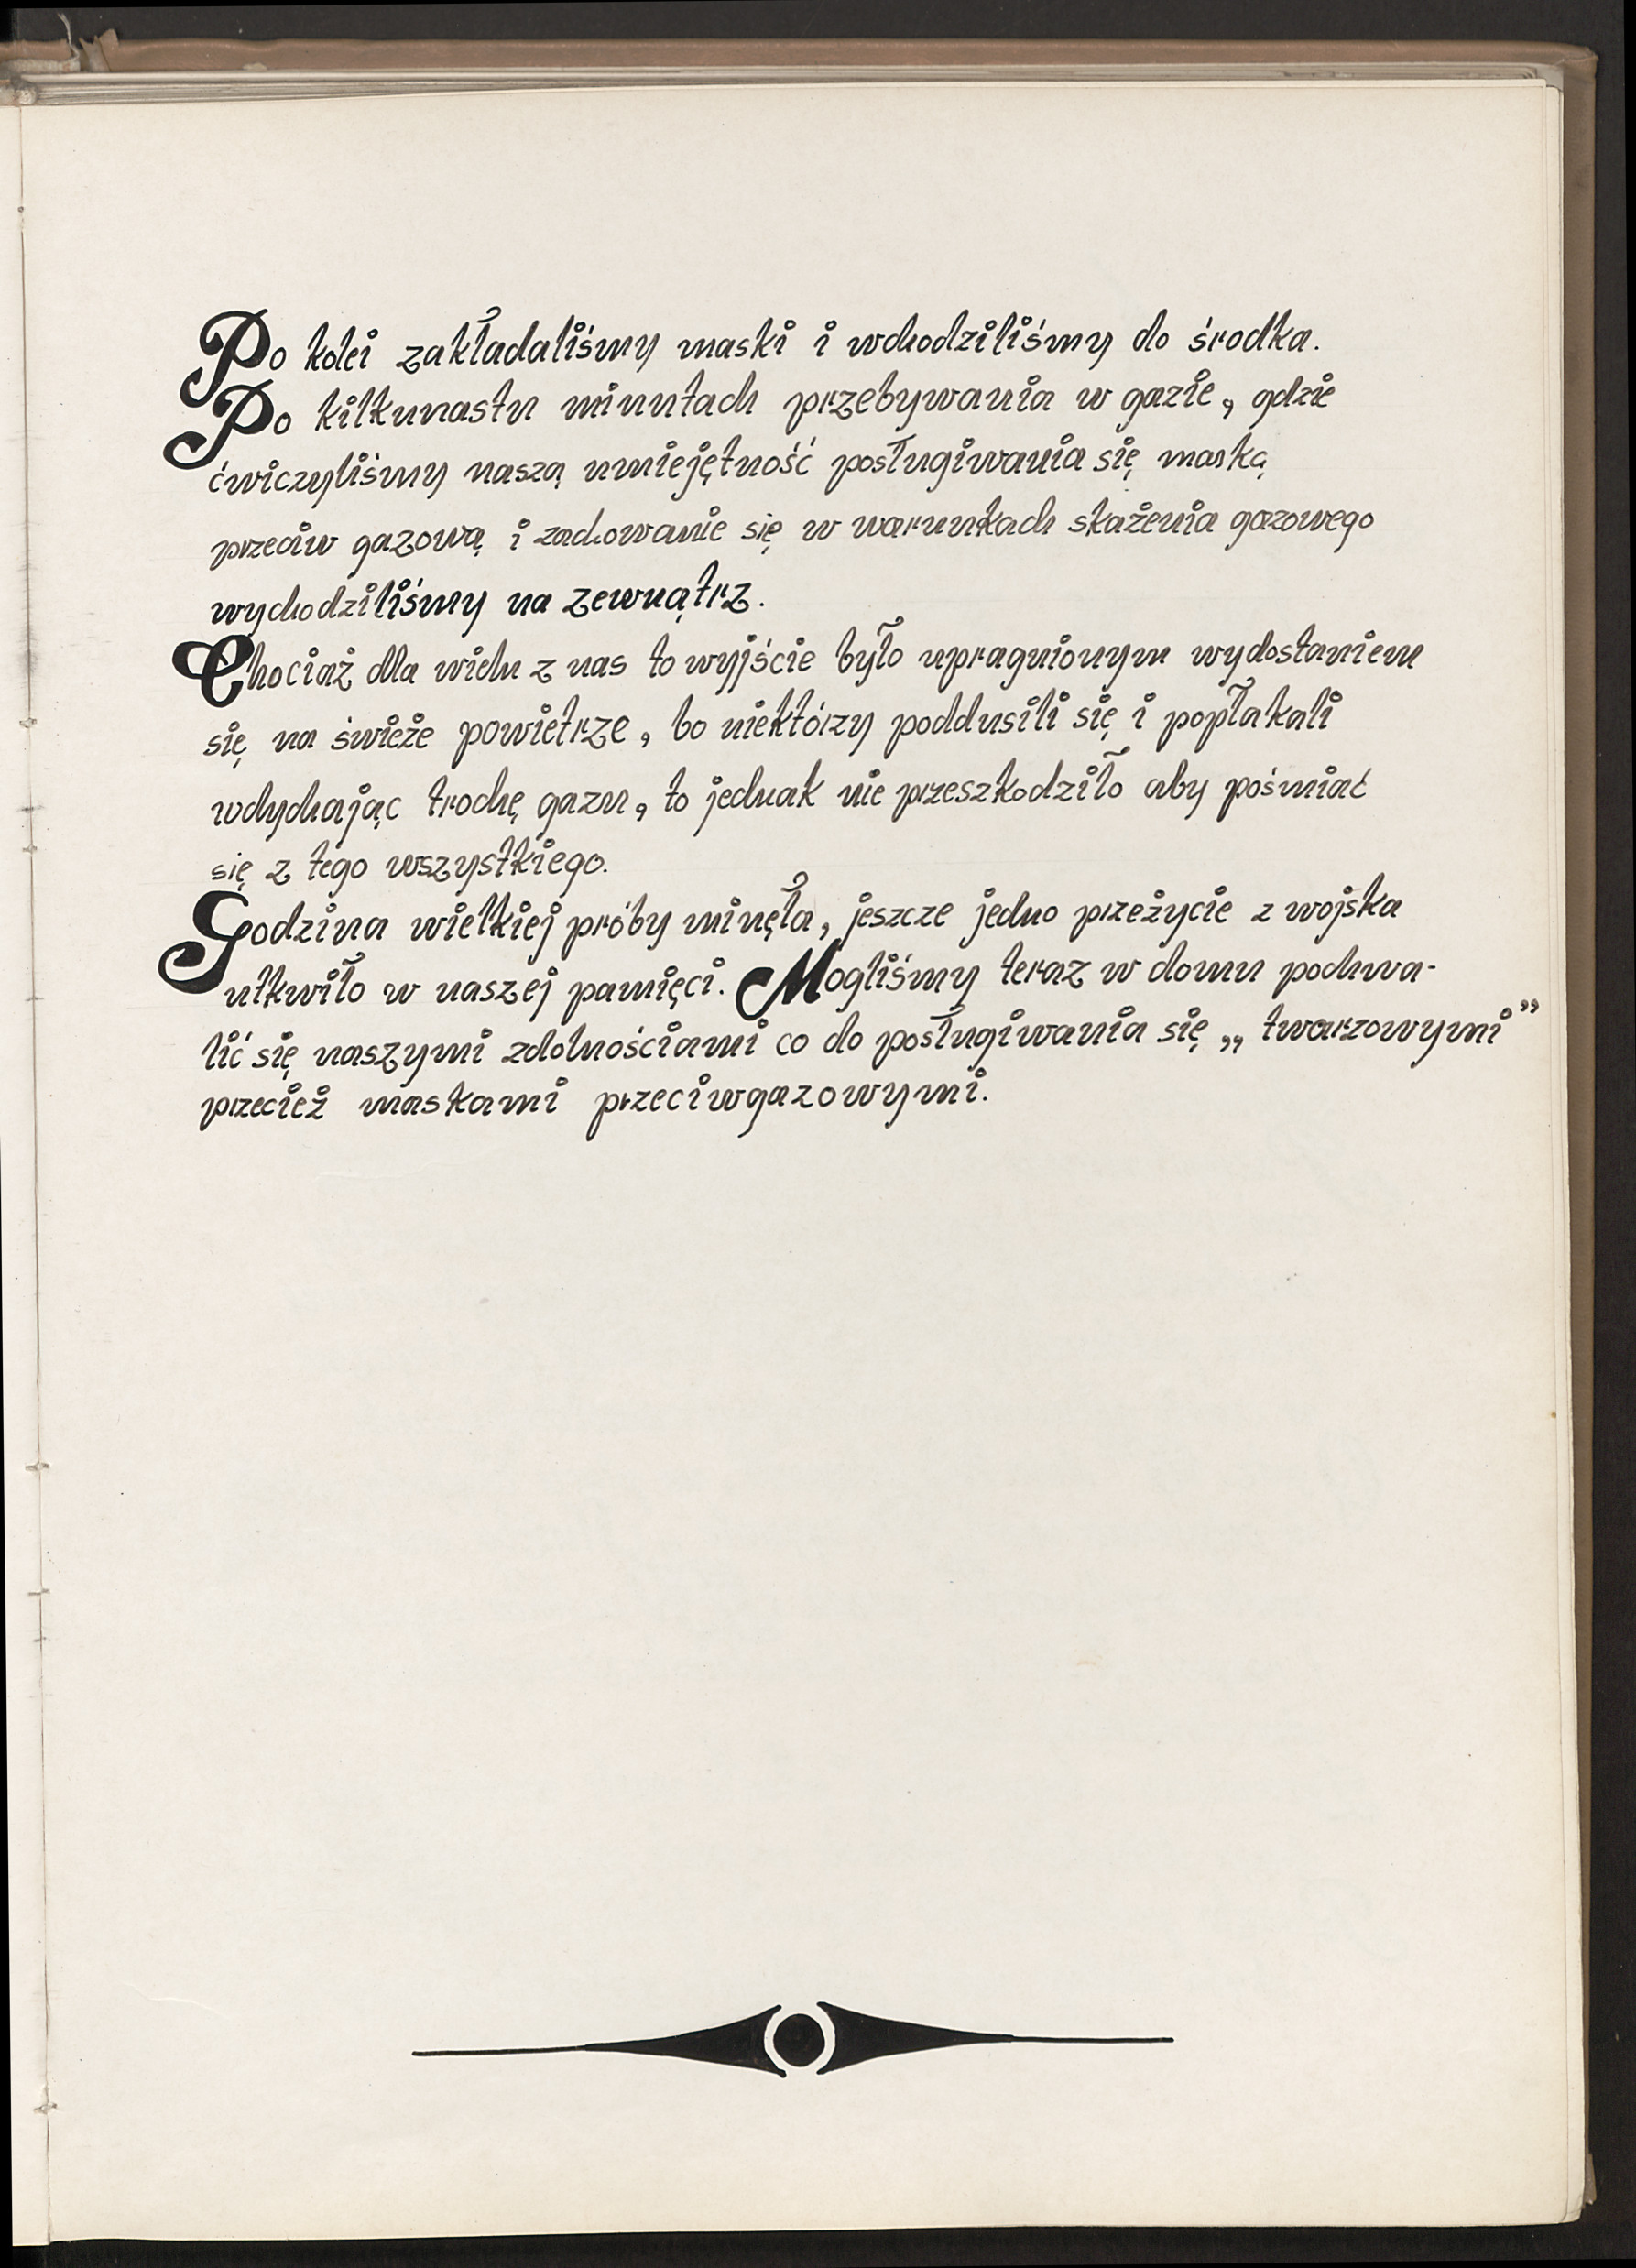 Po kolei zakładaliśmy maski i wchodziliśmy do środka.
Po kilkunastu minutach przebywania w gazie, gdzie
ćwiczyliśmy naszą umiejętność posługiwania się maską
przeciw gazową i zachowanie się w warunkach skażenia gazowego
wychodziliśmy na zewnątrz.
Chociaż dla wielu z nas to wyjście było upragnionym wydostaniem
się na świeże powietrze, bo niektórzy poddusili się i popłakali
wdychając trochę gazu, to jednak nie przeszkodziło aby pośmiać
się z tego wszystkiego.
Godzina wielkiej próby minęła, jeszcze jedno przeżycie z wojska
utkwiło w naszej pamięci. Mogliśmy teraz w domu pochwa-
lić się naszymi zdolnościami co do posługiwania się „twarzowymi”
przecież maskami przeciwgazowymi.